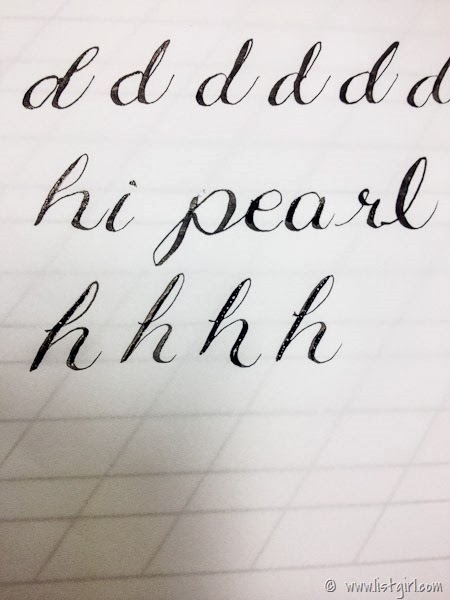 d d d d d d
hi pearl
h h h h
© www.listgirl.com